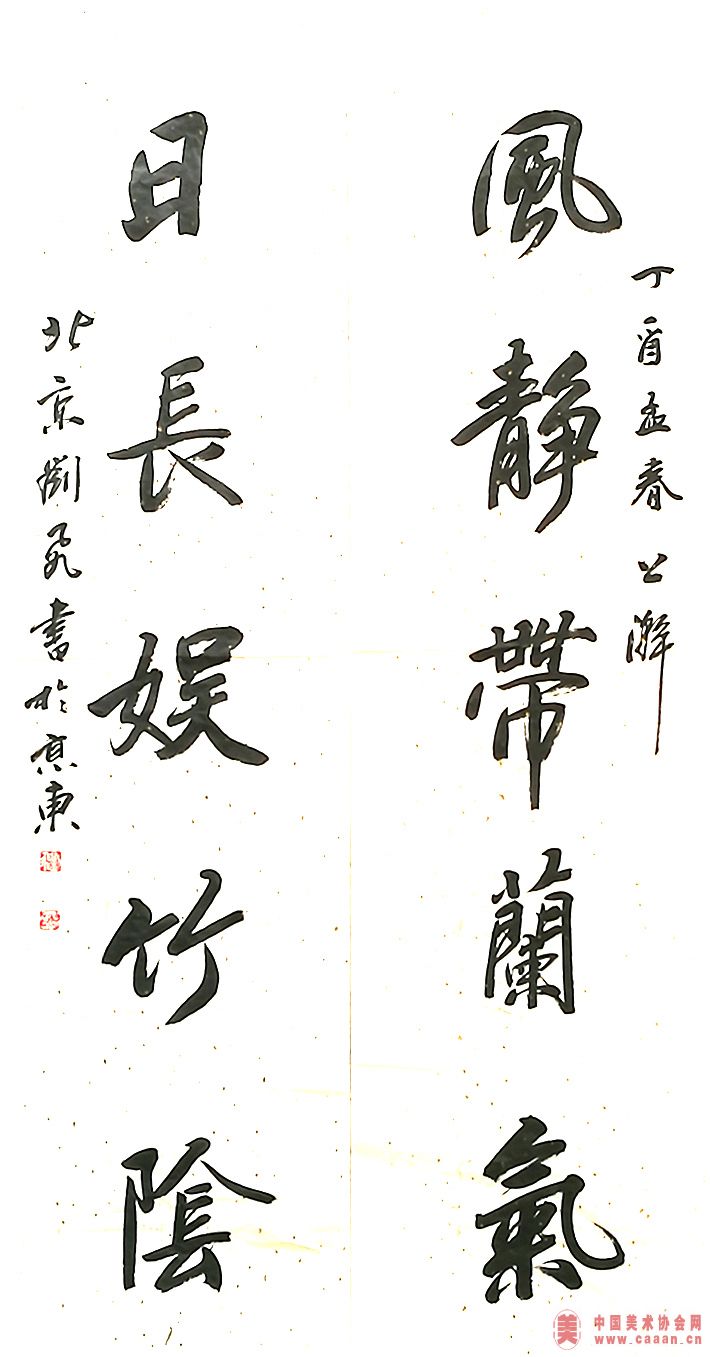 丁酉孟春 公
風静帶蘭氣
日長娛竹陰
北京劉飛書於京東
中国美术协会网
www.caaan.cn